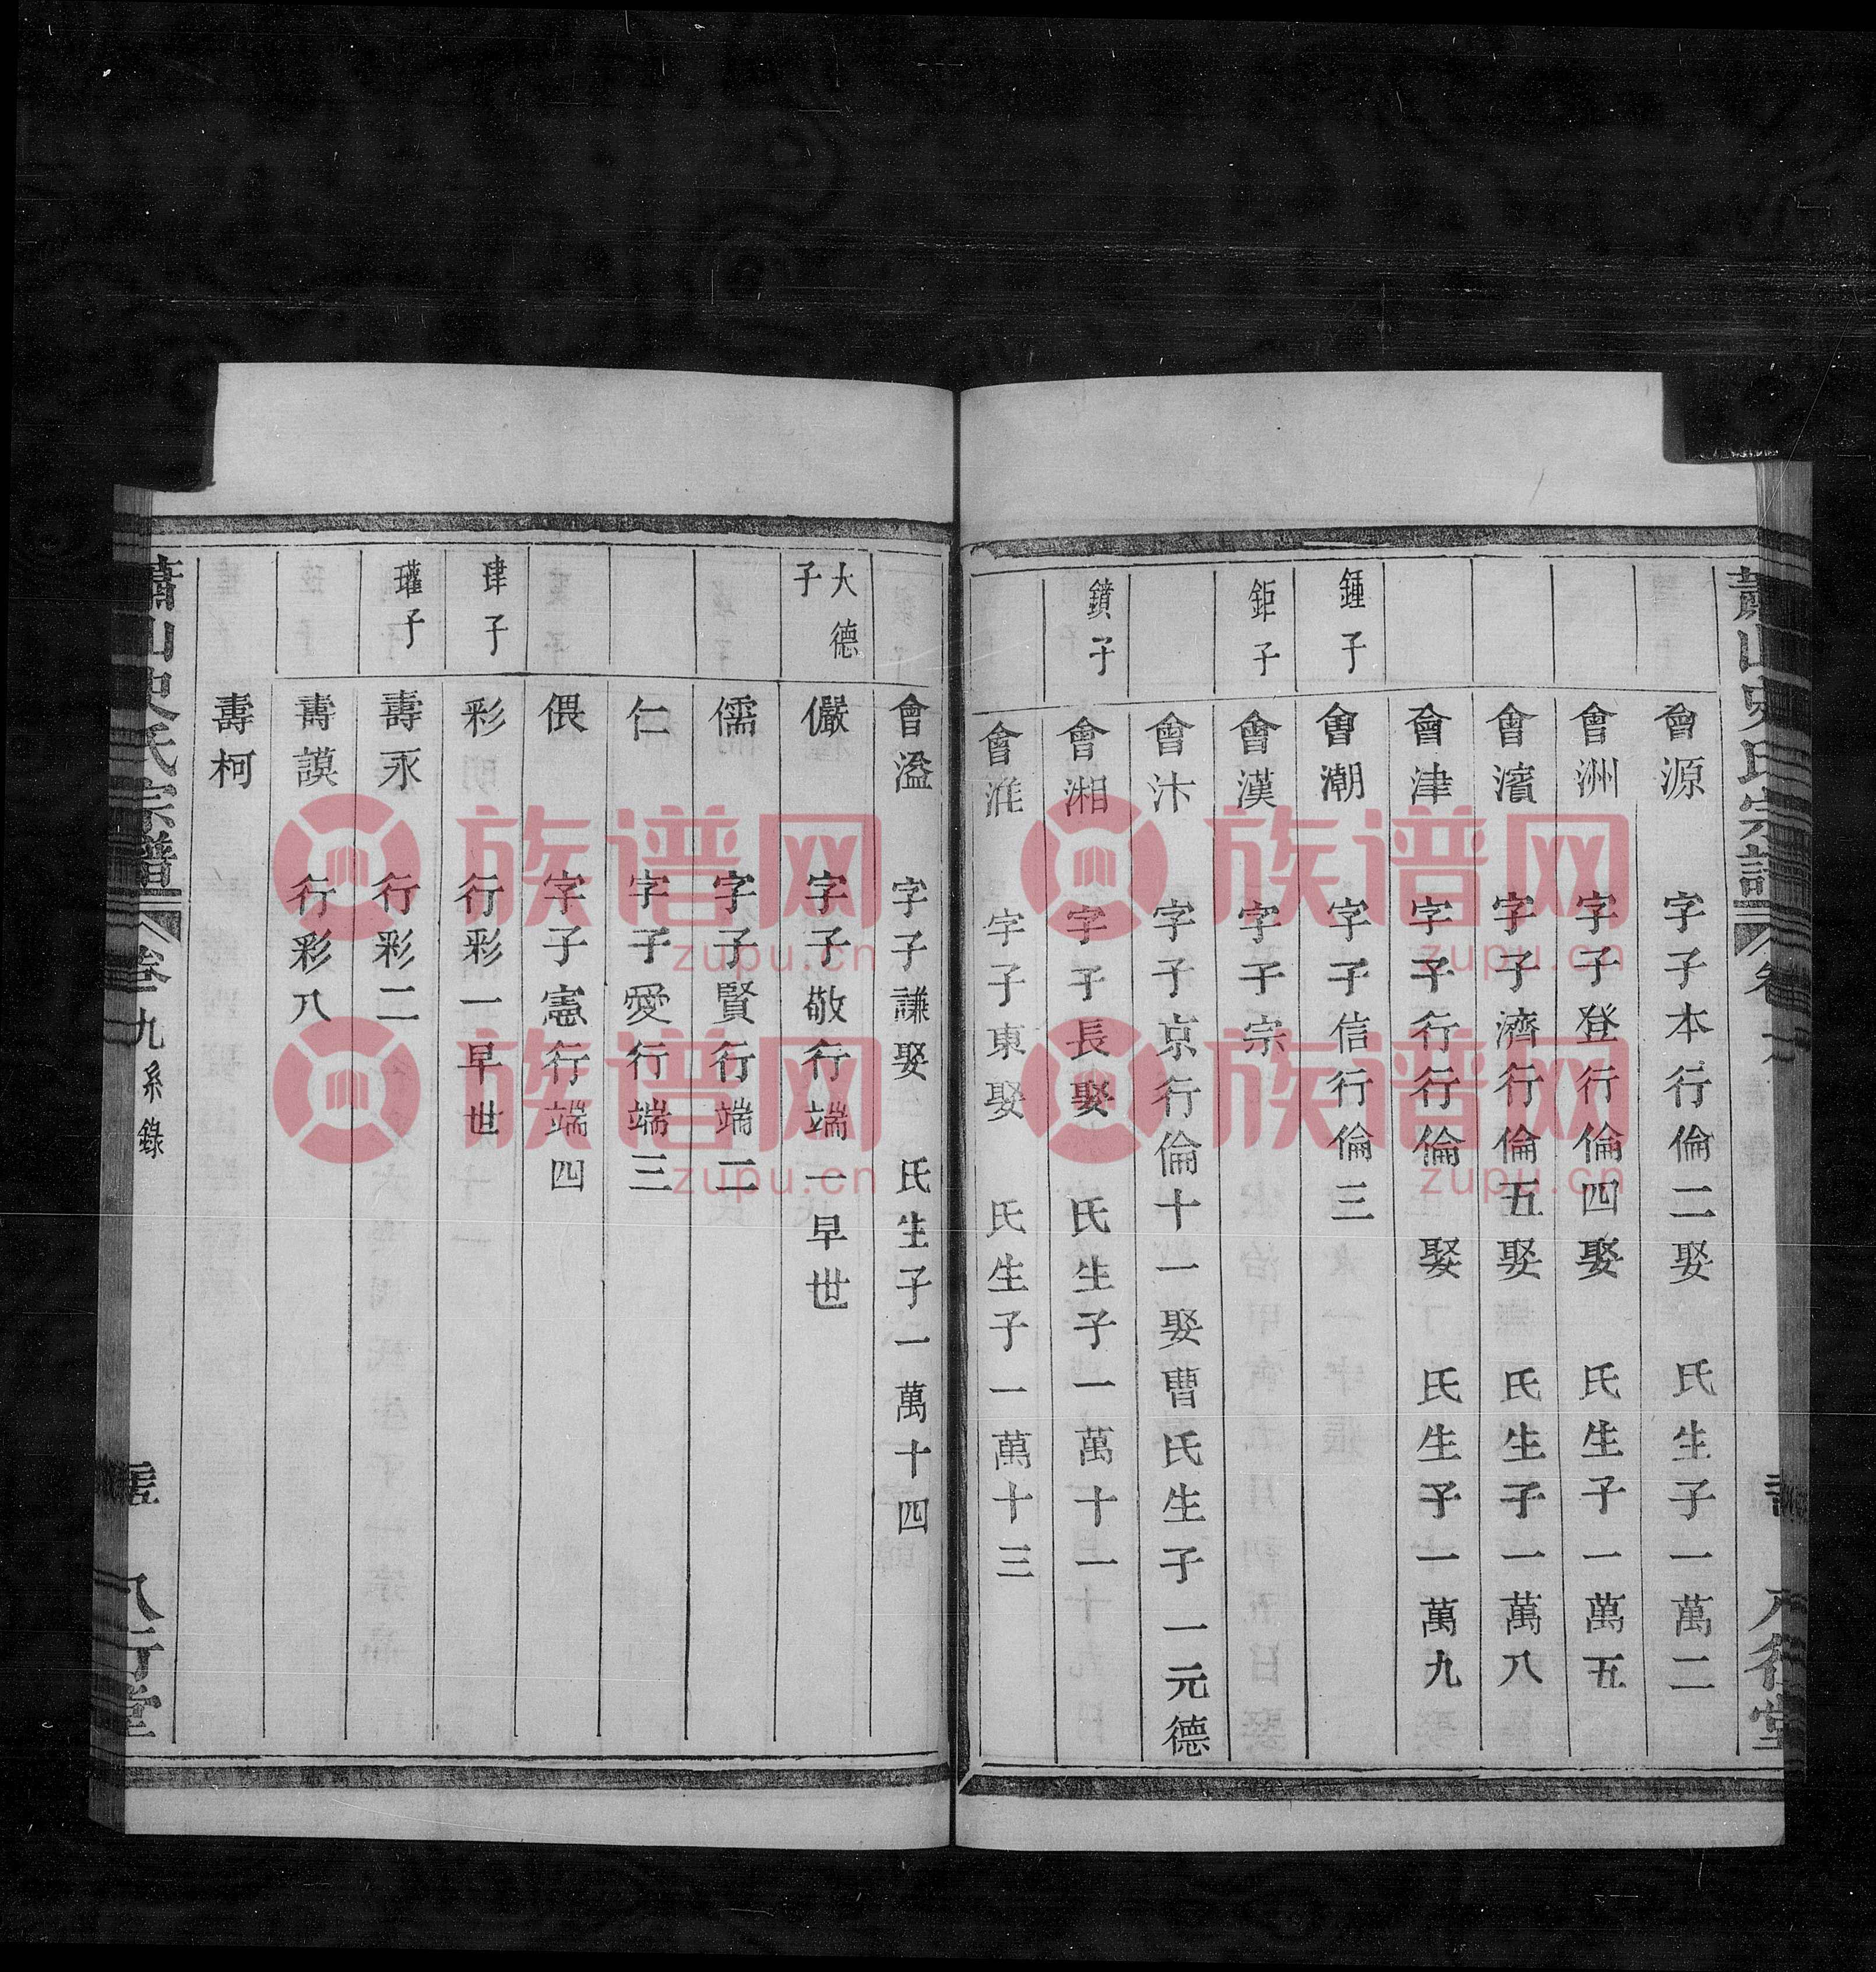 蕭山史氏宗譜 卷 八行堂
會源 字子本行倫二娶 氏生子一萬二
會洲 字子登行倫四娶 氏生子一萬五
會濱 字子濟行倫五娶 氏生子一萬八
會津 字子行行倫 娶 氏生子一萬九
鍾子 會潮 字子信行倫三
鉅子 會漢 字子宗
會汴 字子京行倫十一娶曹氏生子一元德
鐄子 會湘 字子長娶 氏生子一萬十一
會淮 字子東娶 氏生子一萬十三
會溢 字子謙娶 氏生子一萬十四
大德子 儼 字子敬行端一早世
儒 字子賢行端二
仁 字子愛行端三
偎 字子憲行端四
珒子 彩 行彩一早世
瓘子 壽永 行彩二
壽謨 行彩八
壽柯
蕭山史氏宗譜 卷九系錄 八行堂
族谱网
zupu.cn
族谱网
zupu.cn
族谱网
zupu.cn
族谱网
zupu.cn